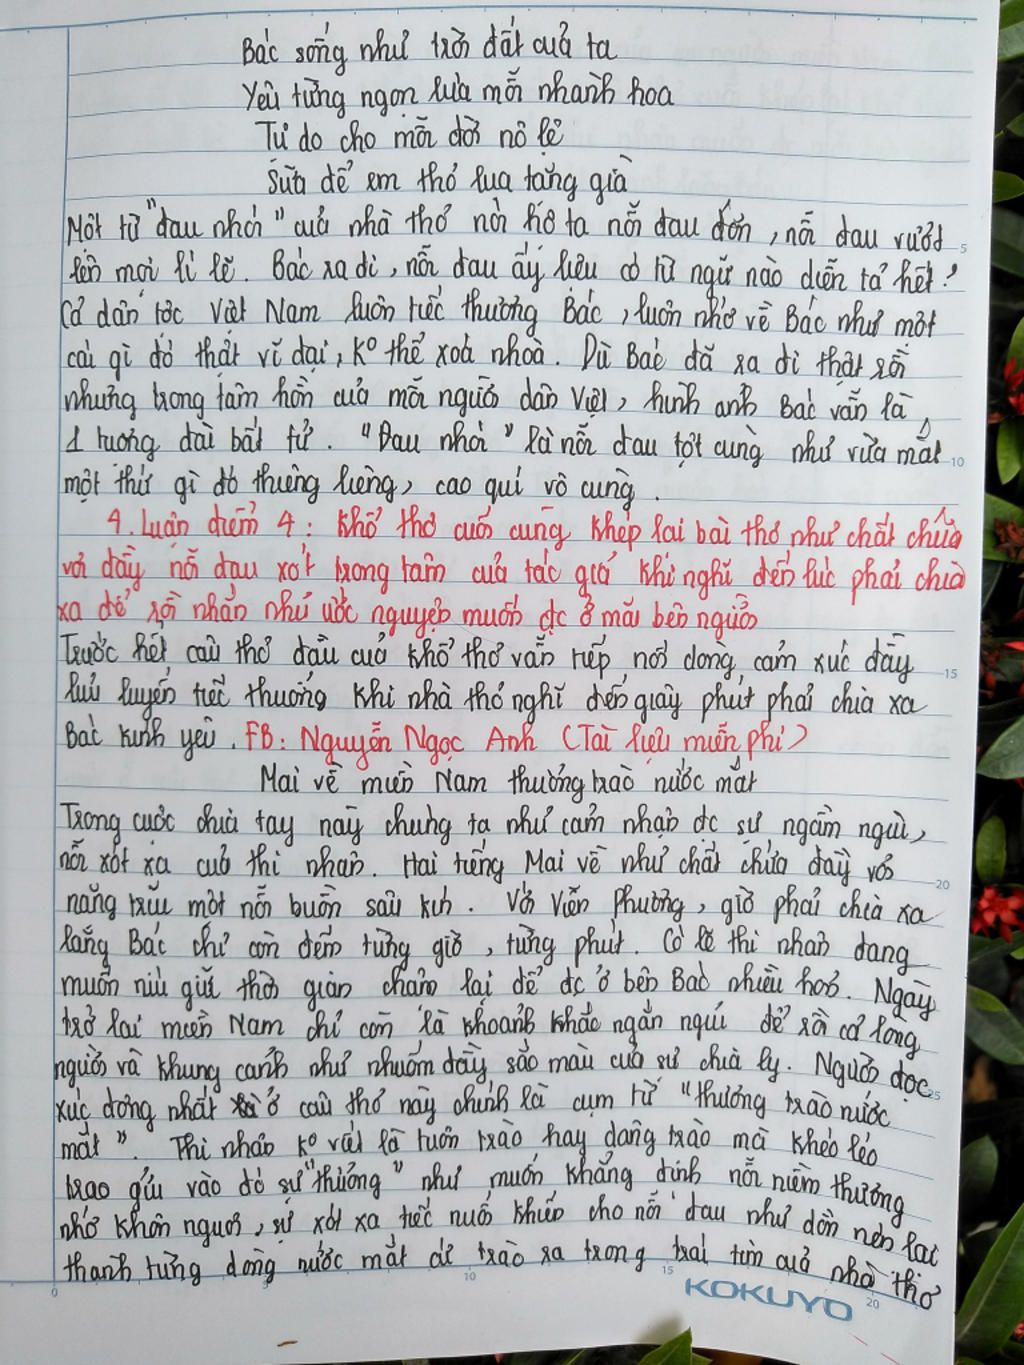 Bác sống như trời đất của ta
Yêu từng ngọn lúa mỗi nhành hoa
Tự do cho mỗi đời nô lệ
Sữa để em thơ lụa tặng già
Một từ "đau nhói" của nhà thơ nói hộ ta nỗi đau đớn, nỗi đau vượt
lên mọi lí lẽ. Bác ra đi, nỗi đau ấy liệu có từ ngữ nào diễn tả hết?
Cả dân tộc Việt Nam luôn tiếc thương Bác, luôn nhớ về Bác như một
cái gì đó thật vĩ đại, ko thể xoá nhoà. Dù Bác đã ra đi thật rồi
nhưng trong tâm hồn của mỗi người dân Việt, hình ảnh Bác vẫn là
1 tượng đài bất tử. "Đau nhói" là nỗi đau tột cùng như vừa mất
một thứ gì đó thiêng liêng, cao quí vô cùng.
4. Luận điểm 4: Khổ thơ cuối cùng khép lại bài thơ như chất chứa
với đầy nỗi đau xót trong tâm của tác giả khi nghĩ đến lúc phải chia
xa để rồi nhắn nhủ ước nguyện muốn đc ở mãi bên người
Trước hết, câu thơ đầu của khổ thơ vẫn tiếp nối dòng cảm xúc đầy
lưu luyến tiếc thương khi nhà thơ nghĩ đến giây phút phải chia xa
Bác kính yêu. FB: Nguyễn Ngọc Anh (Tài liệu miễn phí)
Mai về miền Nam thương trào nước mắt
Trong cuộc chia tay này chúng ta như cảm nhận đc sự ngậm ngùi,
nỗi xót xa của thi nhân. Hai tiếng Mai về như chất chứa đầy với
nặng trĩu một nỗi buồn sâu kín. Với Viễn Phương, giờ phải chia xa
lăng Bác chỉ còn đếm từng giờ, từng phút. Có lẽ thi nhân đang
muốn níu giữ thời gian chậm lại để đc ở bên Bác nhiều hơn. Ngày
trở lại miền Nam chỉ còn là khoảnh khắc ngắn ngủi để rồi cả lòng
người và khung cảnh như nhuốm đầy sắc màu của sự chia ly. Người đọc
xúc động nhất ở câu thơ này chính là cụm từ "thương trào nước
mắt". Thi nhân ko viết là tuôn trào hay dâng trào mà khéo léo
trao gửi vào đó sự "thương" như muốn khẳng định nỗi niềm thương
nhớ khôn nguôi, sự xót xa tiếc nuối khiến cho nỗi đau như dồn nén lại
thành từng dòng nước mắt cứ trào ra trong trái tim của nhà thơ
KOKUYO
5
10
15
20
25
0
5
10
15
20